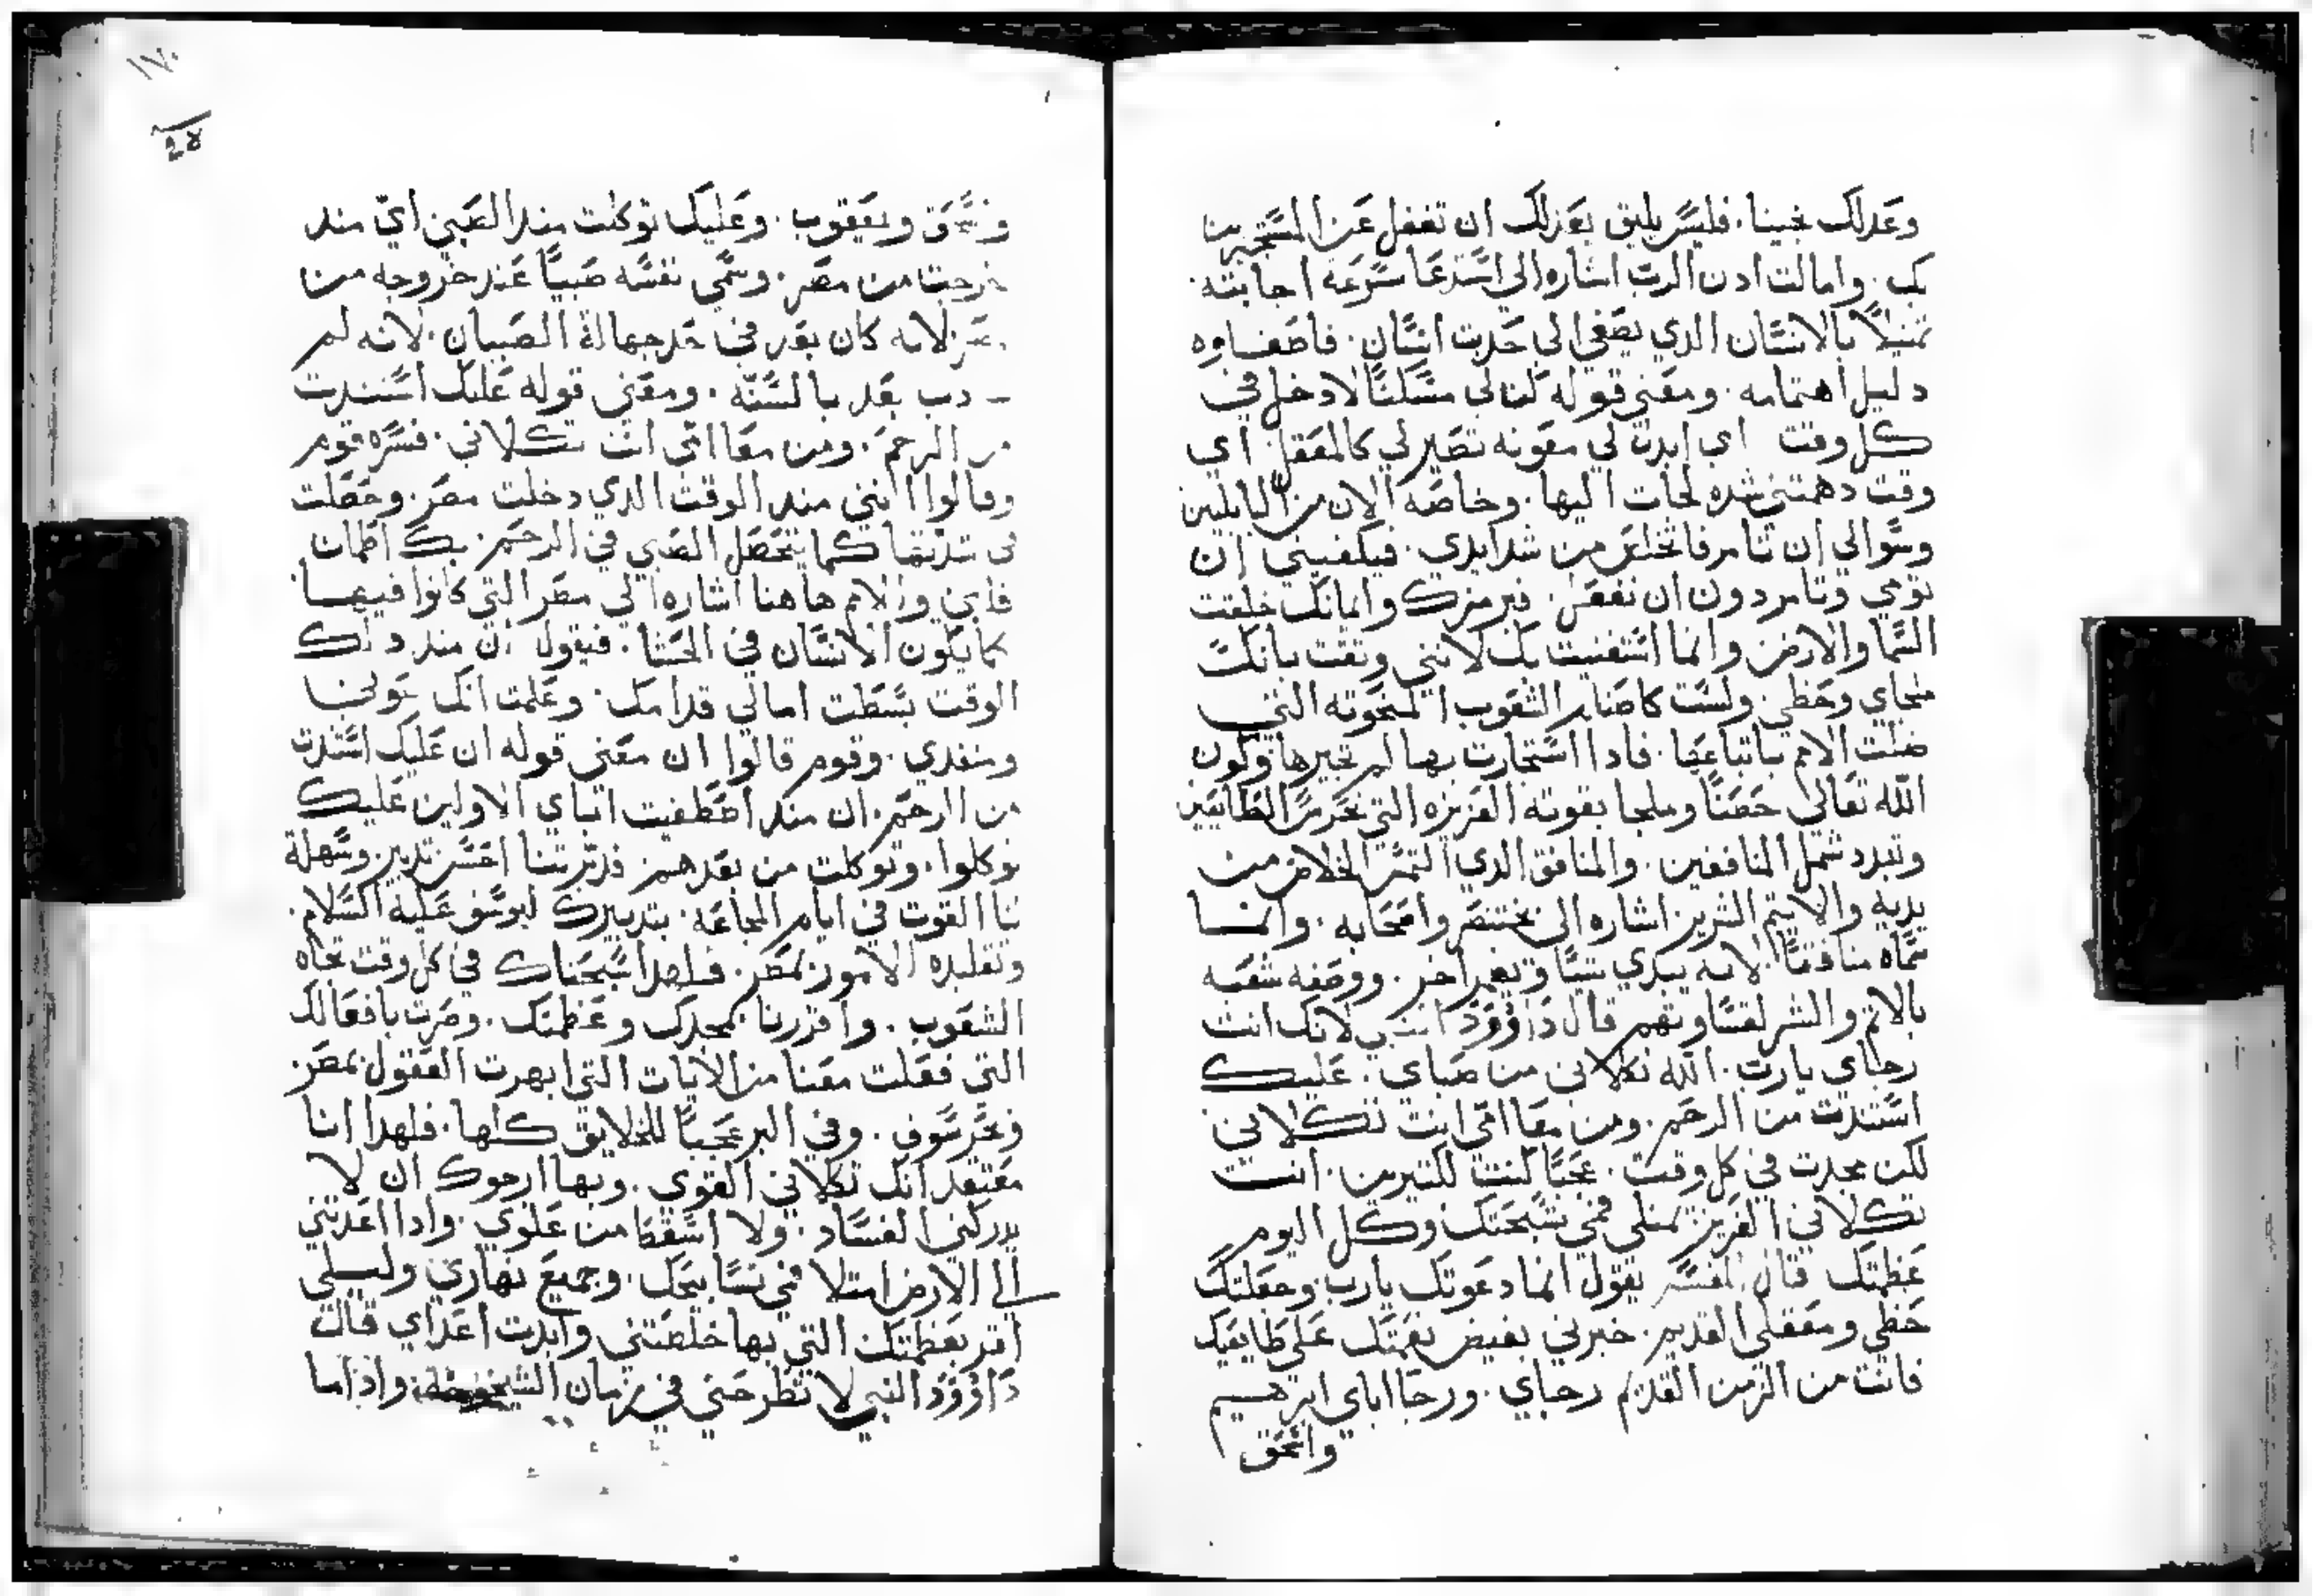 وعدلك نجينا. فليس يليق بعدلك ان تغفل عن المستجيرين
بك. وامالت ادن الرب اشاره الي استدعا سرعة اجابته.
تمتيلاً بالانسان الدي يصغي الي حديت انسان. فاصغاوه
دليل اهتمامه. ومعني قوله كن لي مسكنًا لادخل في
كل وقت اي ابدت لي معونه تصير لي كالمعقل. اي
وقت دهمتني شده لجات اليها. وخاصه الان من البابليين
وسوالي ان تامر فاتخلص من شدايدي. فيكفيني ان
تومي وتامر دون ان تفعل. فبرمزك وايمانك خلقت
السما والارض وانما استغنيت بك لانني وتقت بانك
ملجاي وحفظي ولست كاصنام الشعوب المنحوته التي
ضلت الامم باتباعها. فادا استجارت بها لم تجيرها وتكون
الله تعالى حصنًا وملجا بقوته العزيزه التي تحرس الطايعين
وتبدد شمل المنافقين. والمنافق الدي التمس الخلاص من
يديه والاتيم الشرير اشاره الي بختنصر واصحابه. وانما
سماه منافقًا لانه يبدي شيًا ويضمر اخر. ووصفه شعبه
بالاتم والشر لغشاوتهم قال داوود النبي لانك انت
رجاي يارب. الله تكلاني من صباي. عليك
استندت من الرحم. ومن معا امي انت تكلاني
لك مجدت في كل وقت. عجبًا كنت للكتيرين. انت
تكلاني العزيز يمتلي فمي تسبحتك وكل اليوم
عظمتك قال المفسر يقول انما دعوتك يارب وجعلتك
حفظي ومعقلي القديم. خبرني بفيض نعمتك على طايعيك
فانت من الزمن القديم رجاي. ورجا اباي ابرهيم
واسحق
١٧٠
واسحق ويعقوب. وعليك توكلت مند الصبي اي مند
خرجت من مصر. وسمي نفسه صبيًا عند خروجه من
مصر لانه كان بعد في حد جهالة الصبيان. لانه لم
يودب بعد بالسنّه. ومعني قوله عليك استندت
من الرحم. ومن معا امي انت تكلاني. فسره قوم
وقالوا انني مند الوقت الدي دخلت مصر. وحصلت
في شدتها كما يتحصل الصبي في الرحم. بك اطمان
قلبي والام هاهنا اشاره الي مصر التي كانوا فيها
كما يكون الانسان في الحشا. فيقول ان مند دلك
الوقت بسطت امالي قدامك. وعلمت انك عوني
ومنقدي. وقوم قالوا ان معني قوله ان عليك استندت
من الرحم. ان مند اصطفيت اباي الاولين عليك
توكلوا. وتوكلت من بعدهم فدبرتنا احسن تدبير. وسهلة
لنا القوت في ايام المجاعه. بتدبيرك ليوسف عليه السلام.
وتقليده الامور بمصر. فلهدا سبحناك في كل وقت تجاه
الشعوب. واقررنا بمجدك وعظمتك. وصرت بافعالك
التي فعلت معنا من الايات التي ابهرت العقول بمصر
وبحر سوف. وفي البر عجبًا للخلايق كلها. فلهدا انا
معتقد انك تكلاني القوي. وبها ارجوك ان لا
يدركني الفساد. ولا اسقط من علوي. وادا اعدتني
الي الارض امتلا فمي تسابيحك. وجميع نهاري وليلي
اقر بعظمتك التي بها خلصتني وابدت اعداي قال
داوود النبي لا تطرحني في زمان الشيخوخه. واذاما